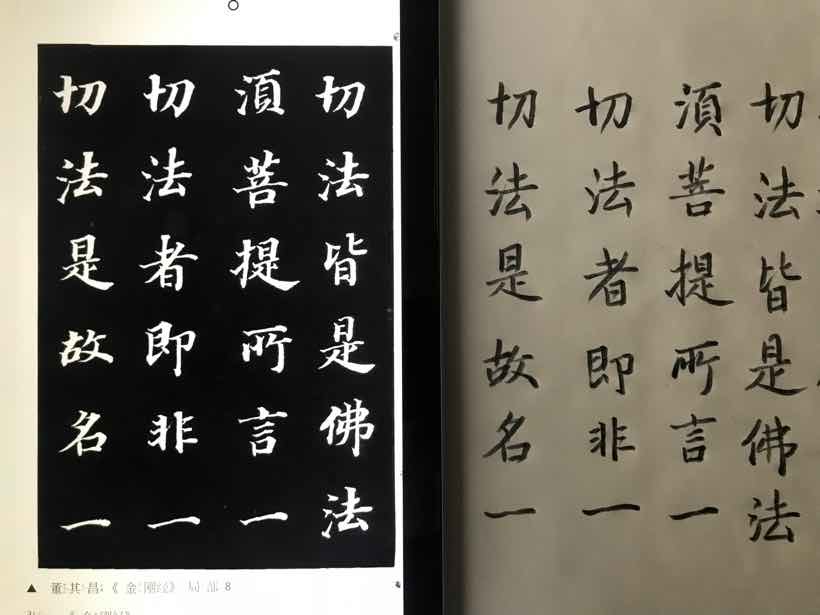 切法皆是佛法
須菩提所言一
切法者即非一
切法是故名一
▲ 董其昌《金刚经》局部 8
切法皆是佛法
須菩提所言一
切法者即非一
切法是故名一